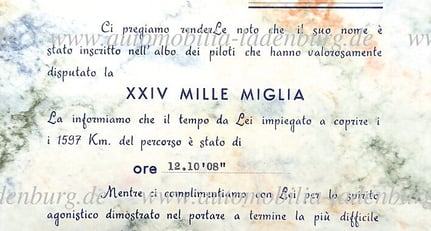 Ci pregiamo renderLe noto che il suo nome è
stato inscritto nell'albo dei piloti che hanno valorosamente
disputato la
XXIV MILLE MIGLIA
La informiamo che il tempo da Lei impiegato a coprire i
i 1597 Km. del percorso è stato di
ore 12.10'08"
Mentre ci complimentiamo con Lei per lo spirito
agonistico dimostrato nel portare a termine la più difficile
www.automobilia-ladenburg.de
www.
denburg.de
www.automobilia-ladenburg.de